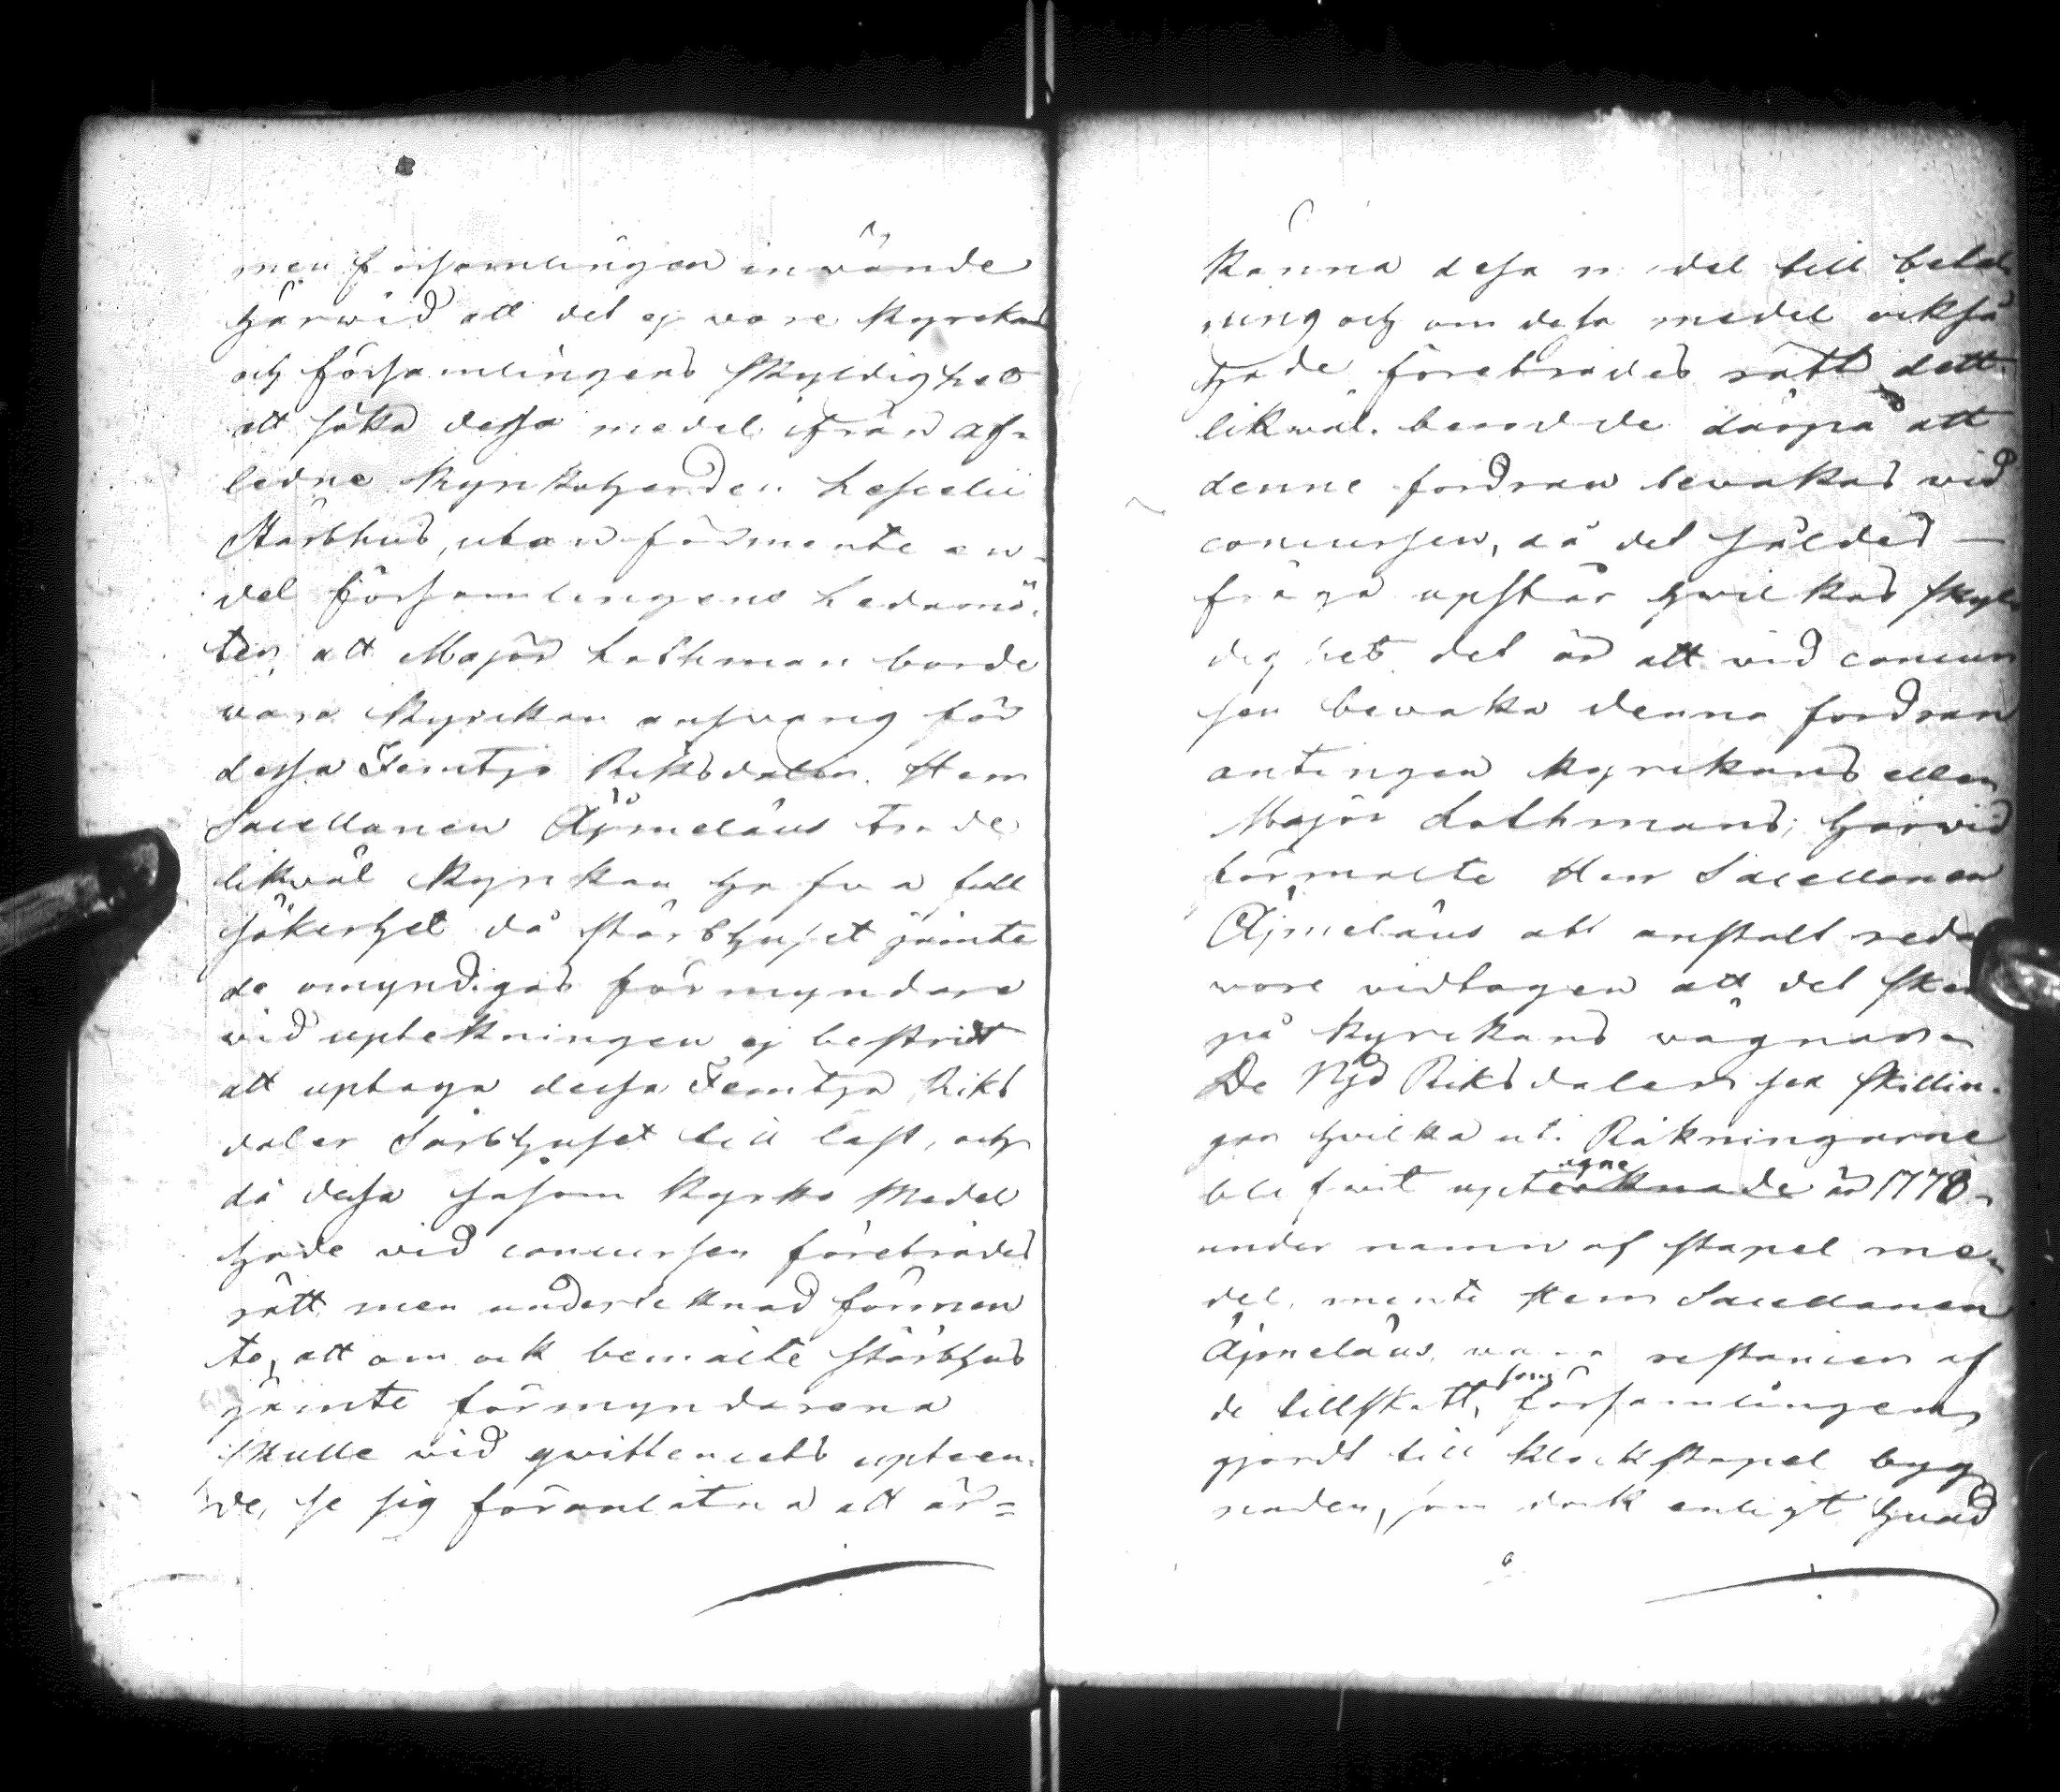 men församlingen inwände
härwid att det ej vore kyrckans
och församlingens skyldighet
att söka dessa medel ifrån af-
ledne kyrkoherden
Stärbhus, utan förmente en
del församlingens Ledamö-
ter, att Major Lothman borde
vara kyrckan answarig för
dessa Femtjo Riksdaler. Herr
Sacellanen Äjmelæus trodde
likwäl kyrckan hafva full
säkerhet då stärbhuset jämte
de omyndigas förmyndare
vid uptekningen ej bestridt
att uptaga dessa Femtjo Riks
daler Stärbhuset till last, och
då dessa såsom kyrko Medel
hade vid concursen företrädes
rätt men undertecknad förmen
te, att om ock bemälte stärbhus
jämte förmyndarena
skulle vid qwittencets upteen-
de, se sig föranlåtna att är=
känna dessa medel till betal
ning och om dessa medel också
hade företrädes rätt dett
likwäl berodde därpå att
denne fordran bevakas vid
concursen, då det således —
fråga upstår hwilkas skyl
dighet det är att vid concur
sen bevaka denna fordran
antingen kyrckans eller
Major Lothmans; härwid
förmälte Herr Sacellanen
Äjmelæus att anstalt reda
wore vidtagen att det sker
på kyrckans vägnar
De Riksdaler sex skillin-
gar hwilka uti Räkningarne
blifwit uptecknade år 1778
agne
under namn af stapel me-
del, mente Herr Sacellanen
Äjmelæus, vara restancer af
de tillskott, som församlingen
gjordt till klockstapel bygg
naden, som dock enligt hwad